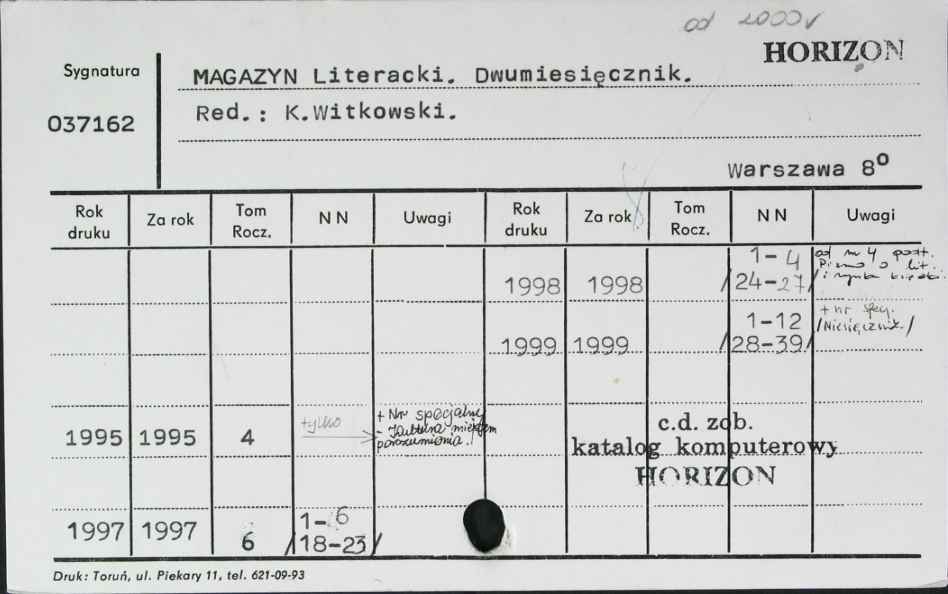 od 2000 r
HORIZON
Sygnatura
037162
MAGAZYN Literacki. Dwumiesięcznik.
Red.: K.Witkowski.
Warszawa 8°
Rok druku Za rok Tom Rocz. N N Uwagi Rok druku Za rok Tom Rocz. N N Uwagi
1998 1998 1-4 /24-27/ od nr 4 podt. Pismo o lit. i rynku
1999 1999 1-12 /28-39/ + nr spec. /Miesięcznik/
1995 1995 4 tylko + Nr specjalny - Kultura miejscem porozumienia./
c.d. zob.
katalog komputerowy
HORIZON
1997 1997 6 1-6 /18-23/
Druk: Toruń, ul. Piekary 11, tel. 621-09-93